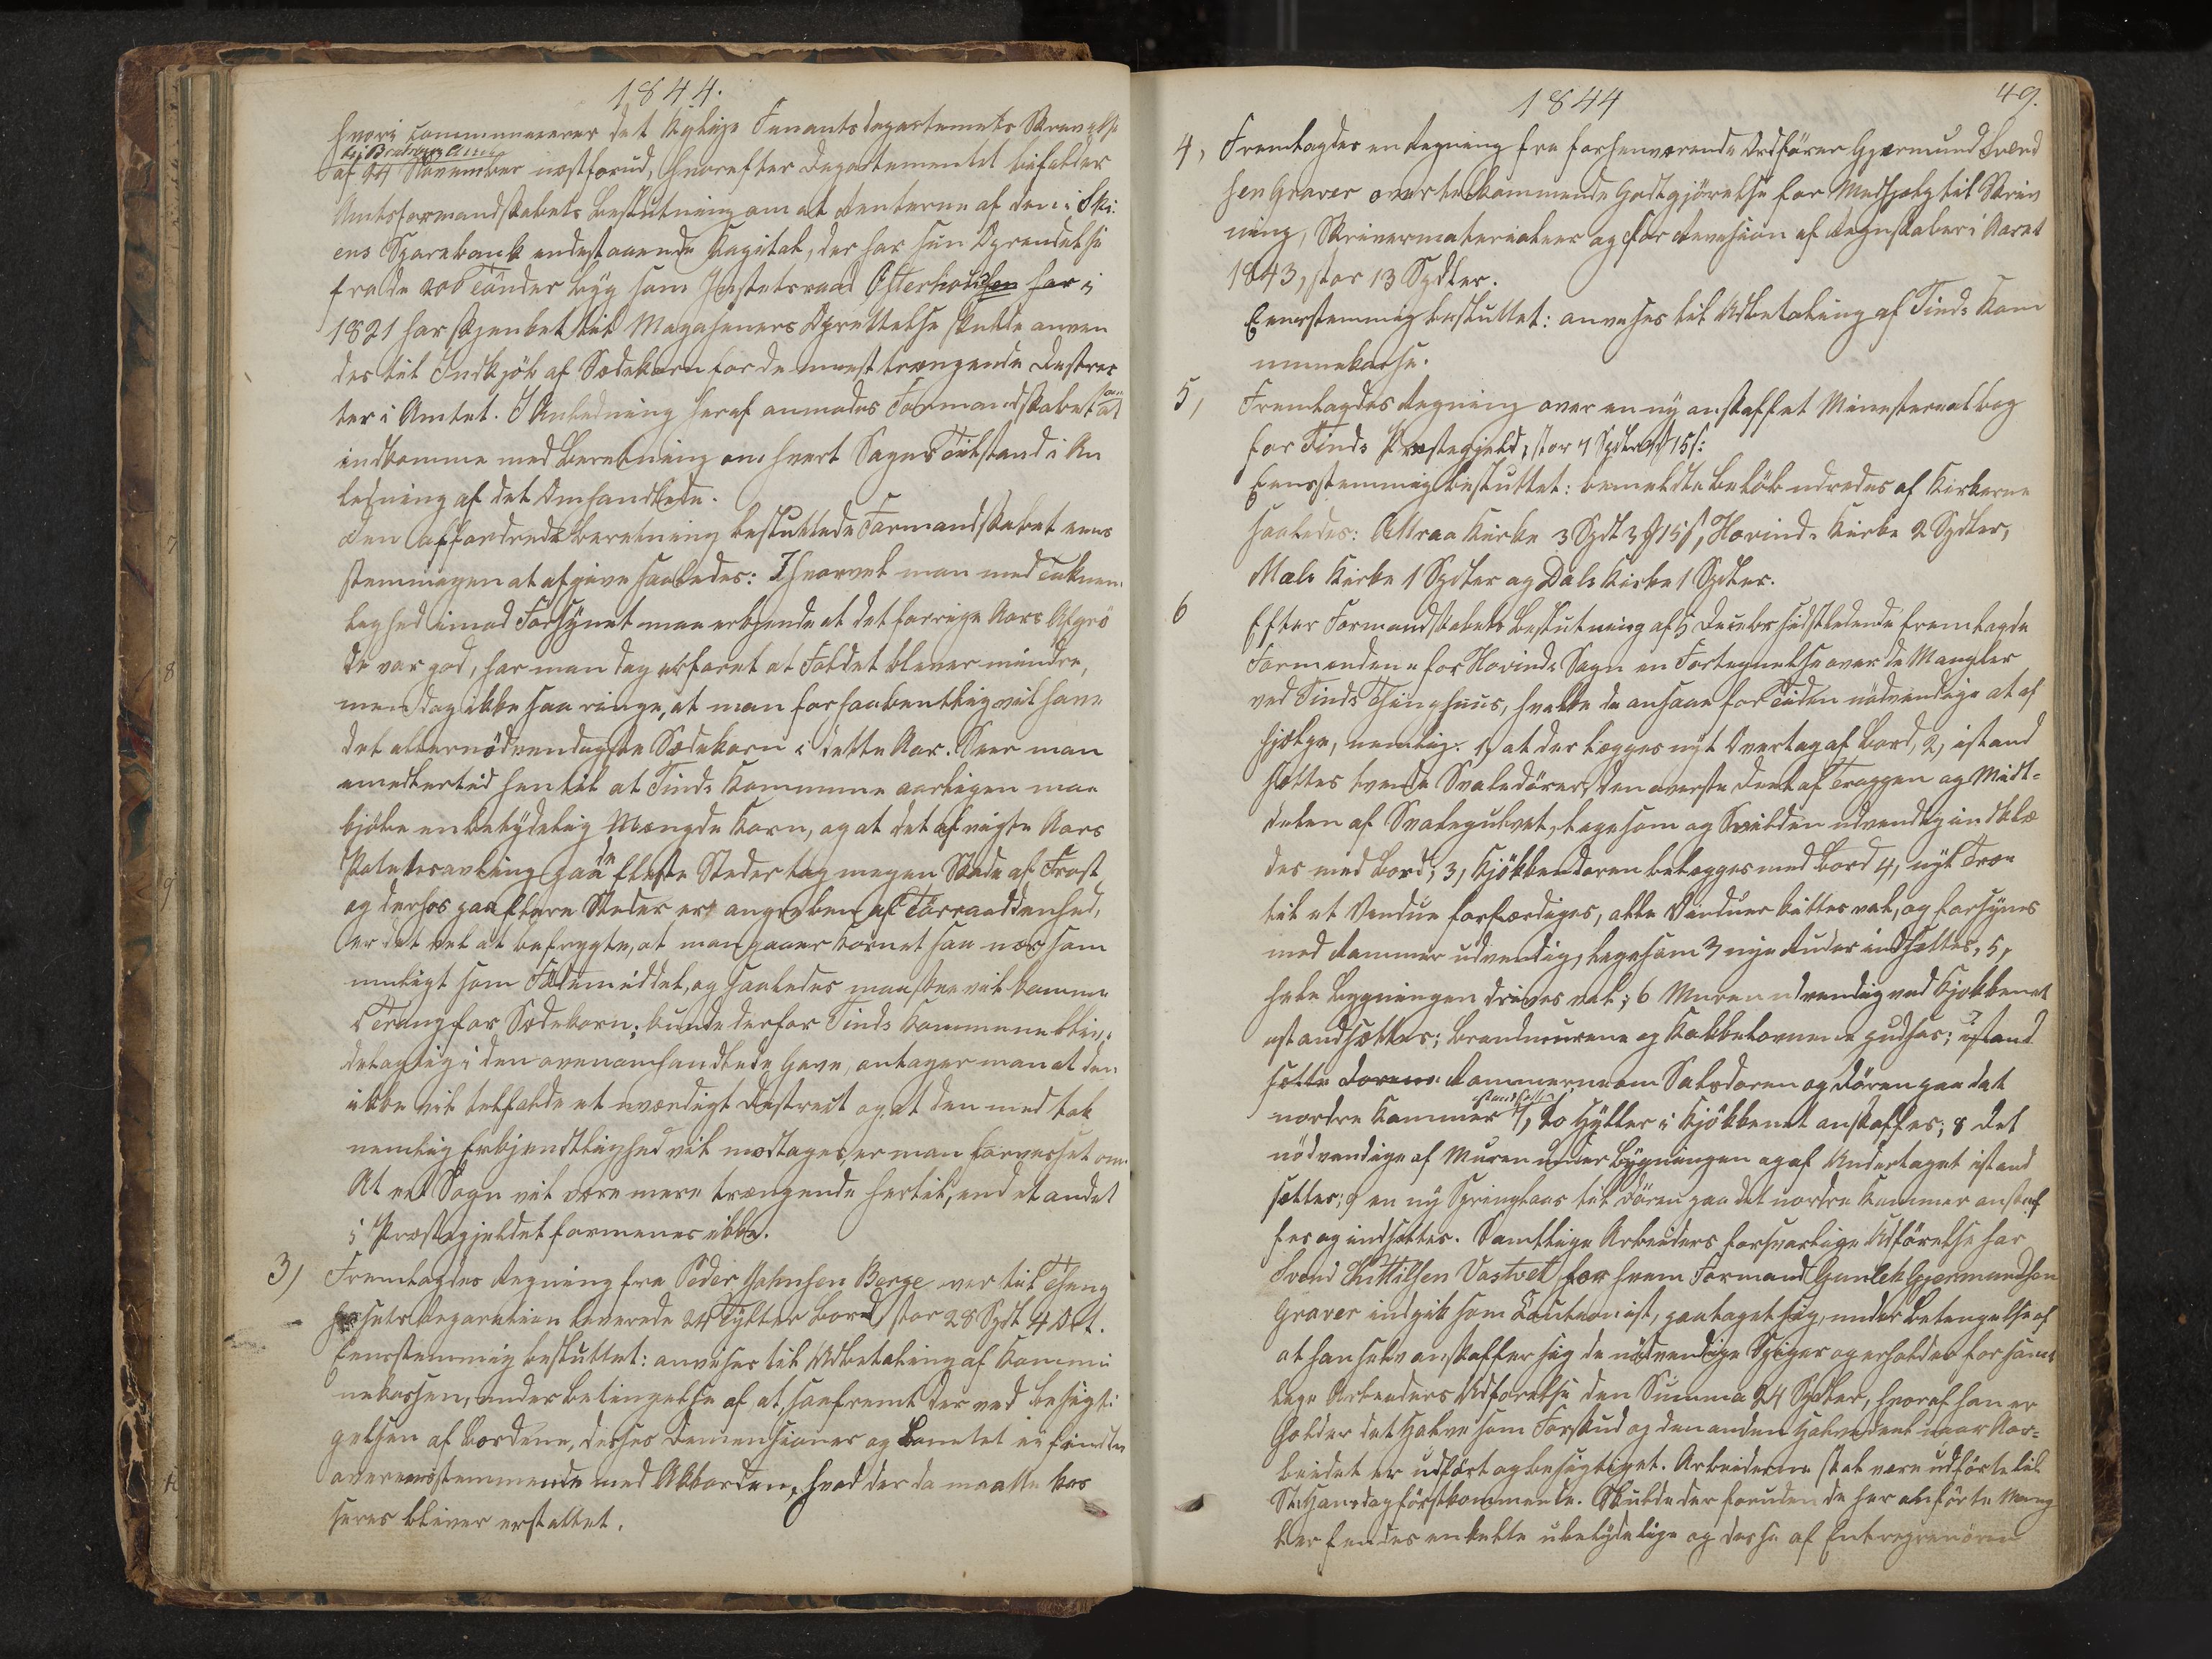 1844.
hvori communiceres det Kglige Finantsdepartements Skrivelse
til Bratsberg Amt
af 24 November næstforud, hvorefter Departementet bifalder
Amtsformandskabets Beslutning om at Renterne af den i Ski
ens Sparebank indestaaende Kapital, der har sin Oprindelse
fra de 200 Tønder Byg som Justitsraad Østerholdsen har i
1821 har skjenket til Magasiners Oprettelse skulde anven
des til Indkjøb af Sædekorn for de meest trængende Distric
ter i Amtet. I Anledning heraf anmodes Formandskabet om at
indkomme med Beretning om hvert Sogns Tilstand i An
ledning af det Omhandlede.
Den affordrede Beretning besluttede Formandskabet eens
stemmigen at afgive saaledes: Ihvorvel man med Taknem
lighed imod Forsynet maa erkjende at det forrige Aars Afgrø
de var god, har man dog erfaret at Foldet bliver mindre,
men dog ikke saa ringe, at man forhaabentlig vil have
det allernødvendigste Sædekorn i dette Aar. Seer man
imidlertid hen til at Tinds Kommune aarligen maa
kjøbe en betydelig Mængde Korn, og at det afvigte Aars
Potetesavling paa de fleste Steder tog megen Skade af Frost
og derhos paa flere Steder er angreben af Tørraaddenhed,
er det vel at befrygte, at man paaer Kornet saa nær som
muligt som Fødemiddel, og saaledes maaskee vil komme
i Trang for Sædekorn; kunde derfor Tinds Kommune blive
delagtig i den ovenomhandlede Gave, antager man at den
ikke vil tilfalde et uværdigt District og at den med tak
nemlig Erkjendtlighed vil modtages, er man forvisset om.
At eet Sogn vil være mere trængende hertil, end et andet
i Præstegjeldet formenes ikke.
3) Fremlagdes Regning fra Peder Johnsen Berge over til Thing
husets Reparation leverede 24 Tylter Bord, stor 28 Spdl 4 Ort.
Eensstemmig besluttet: anvises til Udbetaling af Kommu
nekassen, under Betingelse af at, saafremt der ved Besigti
gelsen af Bordene, disses Dimensioner og Qvantitet ei findes
overeensstemmende med Akkorden, hvad der da maatte kas
seres bliver erstattet.
1844
49.
4, Fremlagdes en Regning fra forhenværende Ordfører Gjermund Sværd
sen Graver over tilkommende Godtgjørelse for Medhjelp til Skriv
ning, Skrivermaterialier og for Revision af Regnskaber i Aaret
1843, stor 13 Spdler.
Eensstemmig besluttet: anvises til Udbetaling af Tinds Kom
munekasse.
5, Fremlagdes Regning over en ny anskaffet Ministerialbog
for Tinds Præstegjeld, stor 7 Spdler 3 ₰ 15 s:
Eensstemmig besluttet: bemeldte Beløb udredes af Kirkerne
saaledes: Attraa Kirke 3 Spdl 3 ₰ 15 s, Hovinds Kirke 2 Spdler,
Mæls Kirke 1 Spdler og Dals Kirke 1 Spdler.
6 Efter Formandskabets Beslutning af 5 Decbr sidstledende fremlagde
Formændene for Hovinds Sogn en Fortegnelse over de Mangler
ved Tinds Thinghuus, hvilke de ansaae for Tiden nødvendige at af
hjelpe, nemlig: 1, at der lægges nyt Overtag af Bord, 2, istand
sættes tvende Svaledører, den øverste Deel af Trappen og Midt-
delen af Svalegulvet, ligesom og Svilden udvendig indklæ
des med Bord; 3, Kjøkkendøren belægges med Bord 4, nyt Træe
til et Vindue forfærdiges, alle Vinduer kittes vel, og forsynes
med Rammer udvendig, ligesom 3 nye Ruder indsættes, 5,
hele Bygningen drives vel; 6 Muren udvendig ved Kjøkkenet
istandsættes; Brandmurene og Kakkelovnene pudses; 7 istand
sætte Dørene Rammerne om Salsdøren og Døren paa det
nordre Kammer istandsættes, to Hyller i Kjøkkenet anskaffes; 8 det
nødvendige af Muren under Bygningen og af Undertaget istand
sættes; 9 en ny Springlaas til Døren paa det nordre Kammer anskaf
fes og indsættes. Samtlige Arbeiders forsvarlige Udførelse har
Svend Kittilsen Vastvet, for hvem Formand Gunlek Gjermundsen
Graver indgik som Cautionist, paataget sig, under Betingelse af
at han selv anskaffer sig de nødvendige Spiger og erholder for samt
lige Arbeiders Udførelse den Summa 24 Spdler, hvoraf han er
holder det Halve som Forskud og den anden Halvedeel naar Ar-
beidet er udført og besigtiget. Arbeiderne skal være udførte til
St: Hansdag førstkommende. Skulde der foruden de her anførte Mang
ler findes enkelte ubetydelige og disse af Entreprenøren